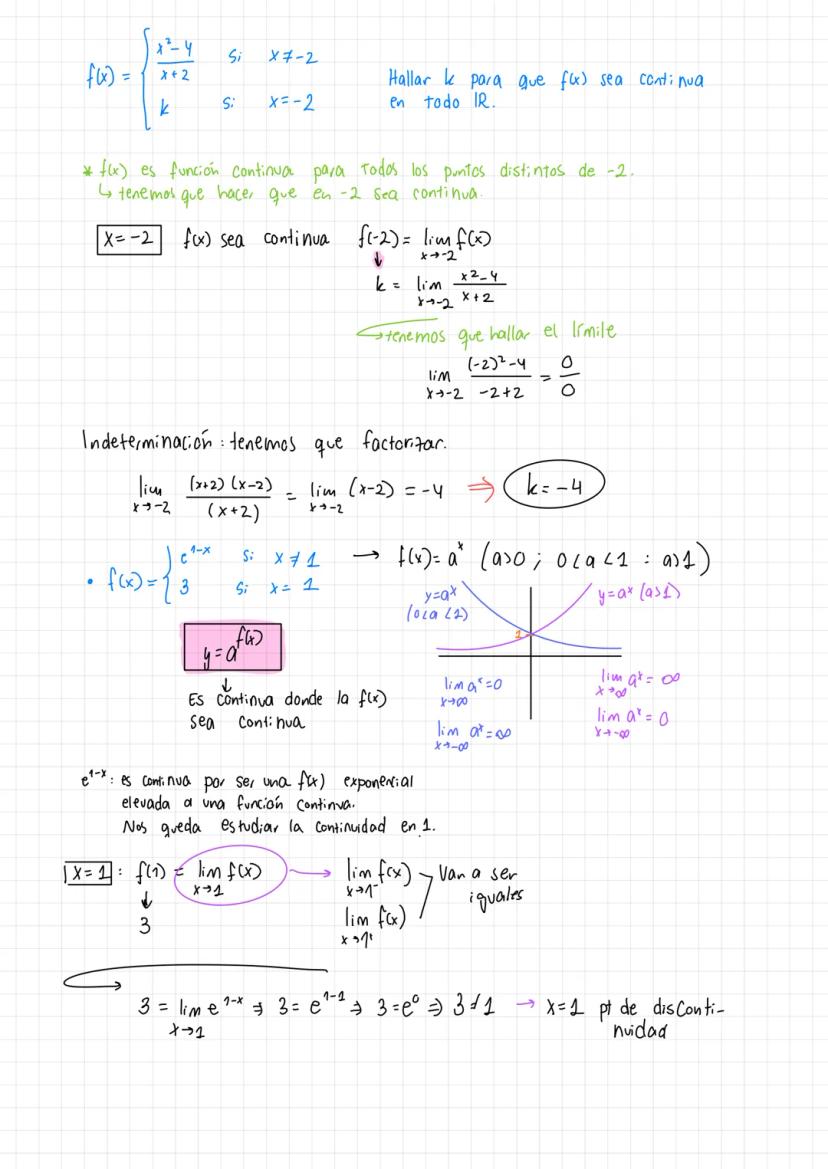 f(x) = { (x² - 4)/(x + 2) si x ≠ -2
k si x = -2
Hallar k para que f(x) sea continua
en todo IR.
* f(x) es función continua para todos los puntos distintos de -2.
↳ tenemos que hacer que en -2 sea continua.
x = -2 f(x) sea continua f(-2) = lim x→-2 f(x)
↓
k = lim x→-2 (x² - 4)/(x + 2)
tenemos que hallar el límite
lim x→-2 ((-2)² - 4)/(-2 + 2) = 0/0
Indeterminación : tenemos que factorizar.
lim x→-2 ((x+2)(x-2))/(x+2) = lim x→-2 (x-2) = -4 ⇒ k = -4
• f(x) = { e^(1-x) si x ≠ 1
3 si x = 1
→ f(x) = a^x (a>0 ; 0<a<1 : a>1)
y = a^x
(0<a<1)
y = a^x (a>1)
1
y = a^f(x)
↓
Es continua donde la f(x)
sea continua
lim x→∞ a^x = 0
lim x→-∞ a^x = ∞
lim x→∞ a^x = ∞
lim x→-∞ a^x = 0
e^(1-x) : es continua por ser una f(x) exponencial
elevada a una función continua.
Nos queda estudiar la continuidad en 1.
x = 1 : f(1) = lim x→1 f(x) → lim x→1⁻ f(x)
lim x→1⁺ f(x)
Van a ser
iguales
↓
3
3 = lim x→1 e^(1-x) ⇒ 3 = e^(1-1) ⇒ 3 = e⁰ ⇒ 3 ≠ 1 → x = 1 pt de disconti-
nuidad